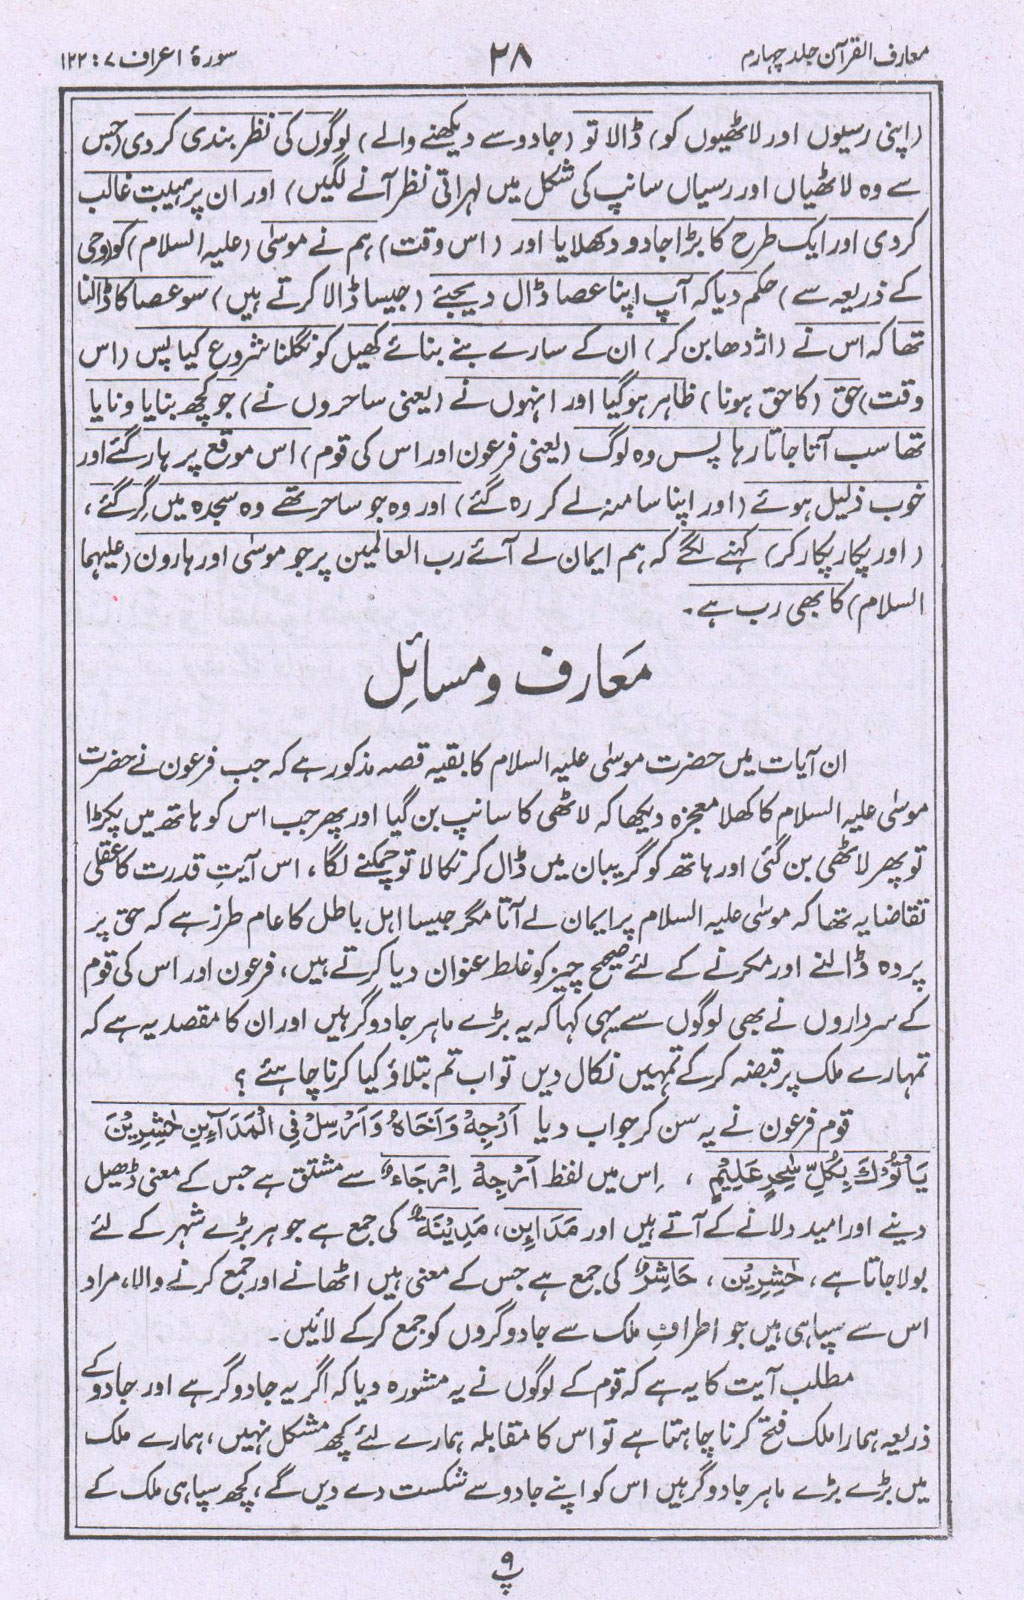 معارف القرآن جلد چہارم ۲۸ سورۂ اعراف ۷ : ۱۲۲
(اپنی رسیوں اور لاٹھیوں کو) ڈالا تو (جادو سے دیکھنے والے) لوگوں کی نظر بندی کر دی (جس
سے وہ لاٹھیاں اور رسیاں سانپ کی شکل میں لہراتی نظر آنے لگیں) اور ان پر ہیبت غالب
کر دی اور ایک طرح کا بڑا جادو دکھلایا اور (اس وقت) ہم نے موسٰی (علیہ السلام) کو (وحی
کے ذریعہ سے) حکم دیا کہ آپ اپنا عصا ڈال دیجئے (جیسا ڈالا کرتے ہیں) سو عصا کا ڈالنا
تھا کہ اس نے (اژدھا بن کر) ان کے سارے بنے بنائے کھیل کو نگلنا شروع کیا پس (اس
وقت) حق (کا حق ہونا) ظاہر ہوگیا اور انہوں نے (یعنی ساحروں نے) جو کچھ بنایا ونایا
تھا سب آتا جاتا رہا پس وہ لوگ (یعنی فرعون اور اس کی قوم) اس موقع پر ہار گئے اور
خوب ذلیل ہوئے (اور اپنا سا منہ لے کر رہ گئے) اور وہ جو ساحر تھے وہ سجدہ میں گر گئے،
(اور پکار پکار کر) کہنے لگے کہ ہم ایمان لے آئے رب العالمین پر جو موسٰی اور ہارون (علیہما
السلام) کا بھی رب ہے۔
مَعارف و مسائِل
ان آیات میں حضرت موسٰی علیہ السلام کا بقیہ قصہ مذکور ہے کہ جب فرعون نے حضرت
موسٰی علیہ السلام کا کھلا معجزہ دیکھا کہ لاٹھی کا سانپ بن گیا اور پھر جب اس کو ہاتھ میں پکڑا
تو پھر لاٹھی بن گئی اور ہاتھ کو گریبان میں ڈال کر نکالا تو چمکنے لگا، اس آیتِ قدرت کا عقلی
تقاضا یہ تھا کہ موسٰی علیہ السلام پر ایمان لے آتا مگر جیسا اہل باطل کا عام طرز ہے کہ حق پر
پردہ ڈالنے اور مکرنے کے لئے صحیح چیز کو غلط عنوان دیا کرتے ہیں، فرعون اور اس کی قوم
کے سرداروں نے بھی لوگوں سے یہی کہا کہ یہ بڑے ماہر جادوگر ہیں اور ان کا مقصد یہ ہے کہ
تمہارے ملک پر قبضہ کرکے تمہیں نکال دیں تو اب تم بتلاؤ کیا کرنا چاہئے ؟
قوم فرعون نے یہ سن کر جواب دیا اَرْجِهْ وَاَخَاهُ وَاَرْسِلْ فِی الْمَدَآئِنِ حٰشِرِیْنَ
یَاْتُوْكَ بِكُلِّ سٰحِرٍ عَلِیْمٍ ، اِس میں لفظ اَرْجِهْ اِرْجَاءٌ سے مشتق ہے جس کے معنی ڈھیل
دینے اور امید دلانے کے آتے ہیں اور مَدَائِن، مَدِیْنَةٌ کی جمع ہے جو ہر بڑے شہر کے لئے
بولا جاتا ہے، حٰشِرِیْن ، حَاشِرٌ کی جمع ہے جس کے معنی ہیں اٹھانے اور جمع کرنے والا، مراد
اس سے سپاہی ہیں جو اطرافِ ملک سے جادوگروں کو جمع کرکے لائیں۔
مطلب آیت کا یہ ہے کہ قوم کے لوگوں نے یہ مشورہ دیا کہ اگر یہ جادوگر ہے اور جادو کے
ذریعہ ہمارا ملک فتح کرنا چاہتا ہے تو اس کا مقابلہ ہمارے لئے کچھ مشکل نہیں، ہمارے ملک
میں بڑے بڑے ماہر جادوگر ہیں اس کو اپنے جادو سے شکست دے دیں گے، کچھ سپاہی ملک کے
۹
پ